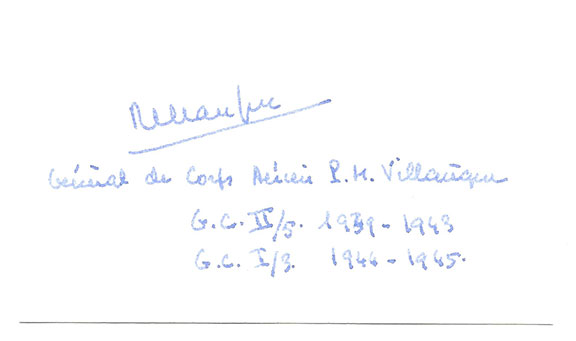 Général de Corps Aérien P.H. Villacèque
G.C. II/5. 1939-1943
G.C. I/3. 1944-1945.